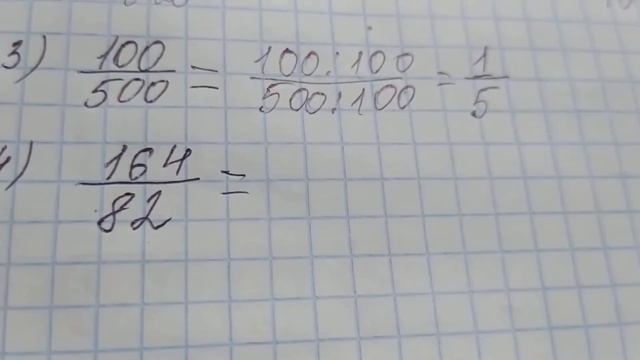 3) 100/500 = 100:100/500:100 = 1/5
4) 164/82 =